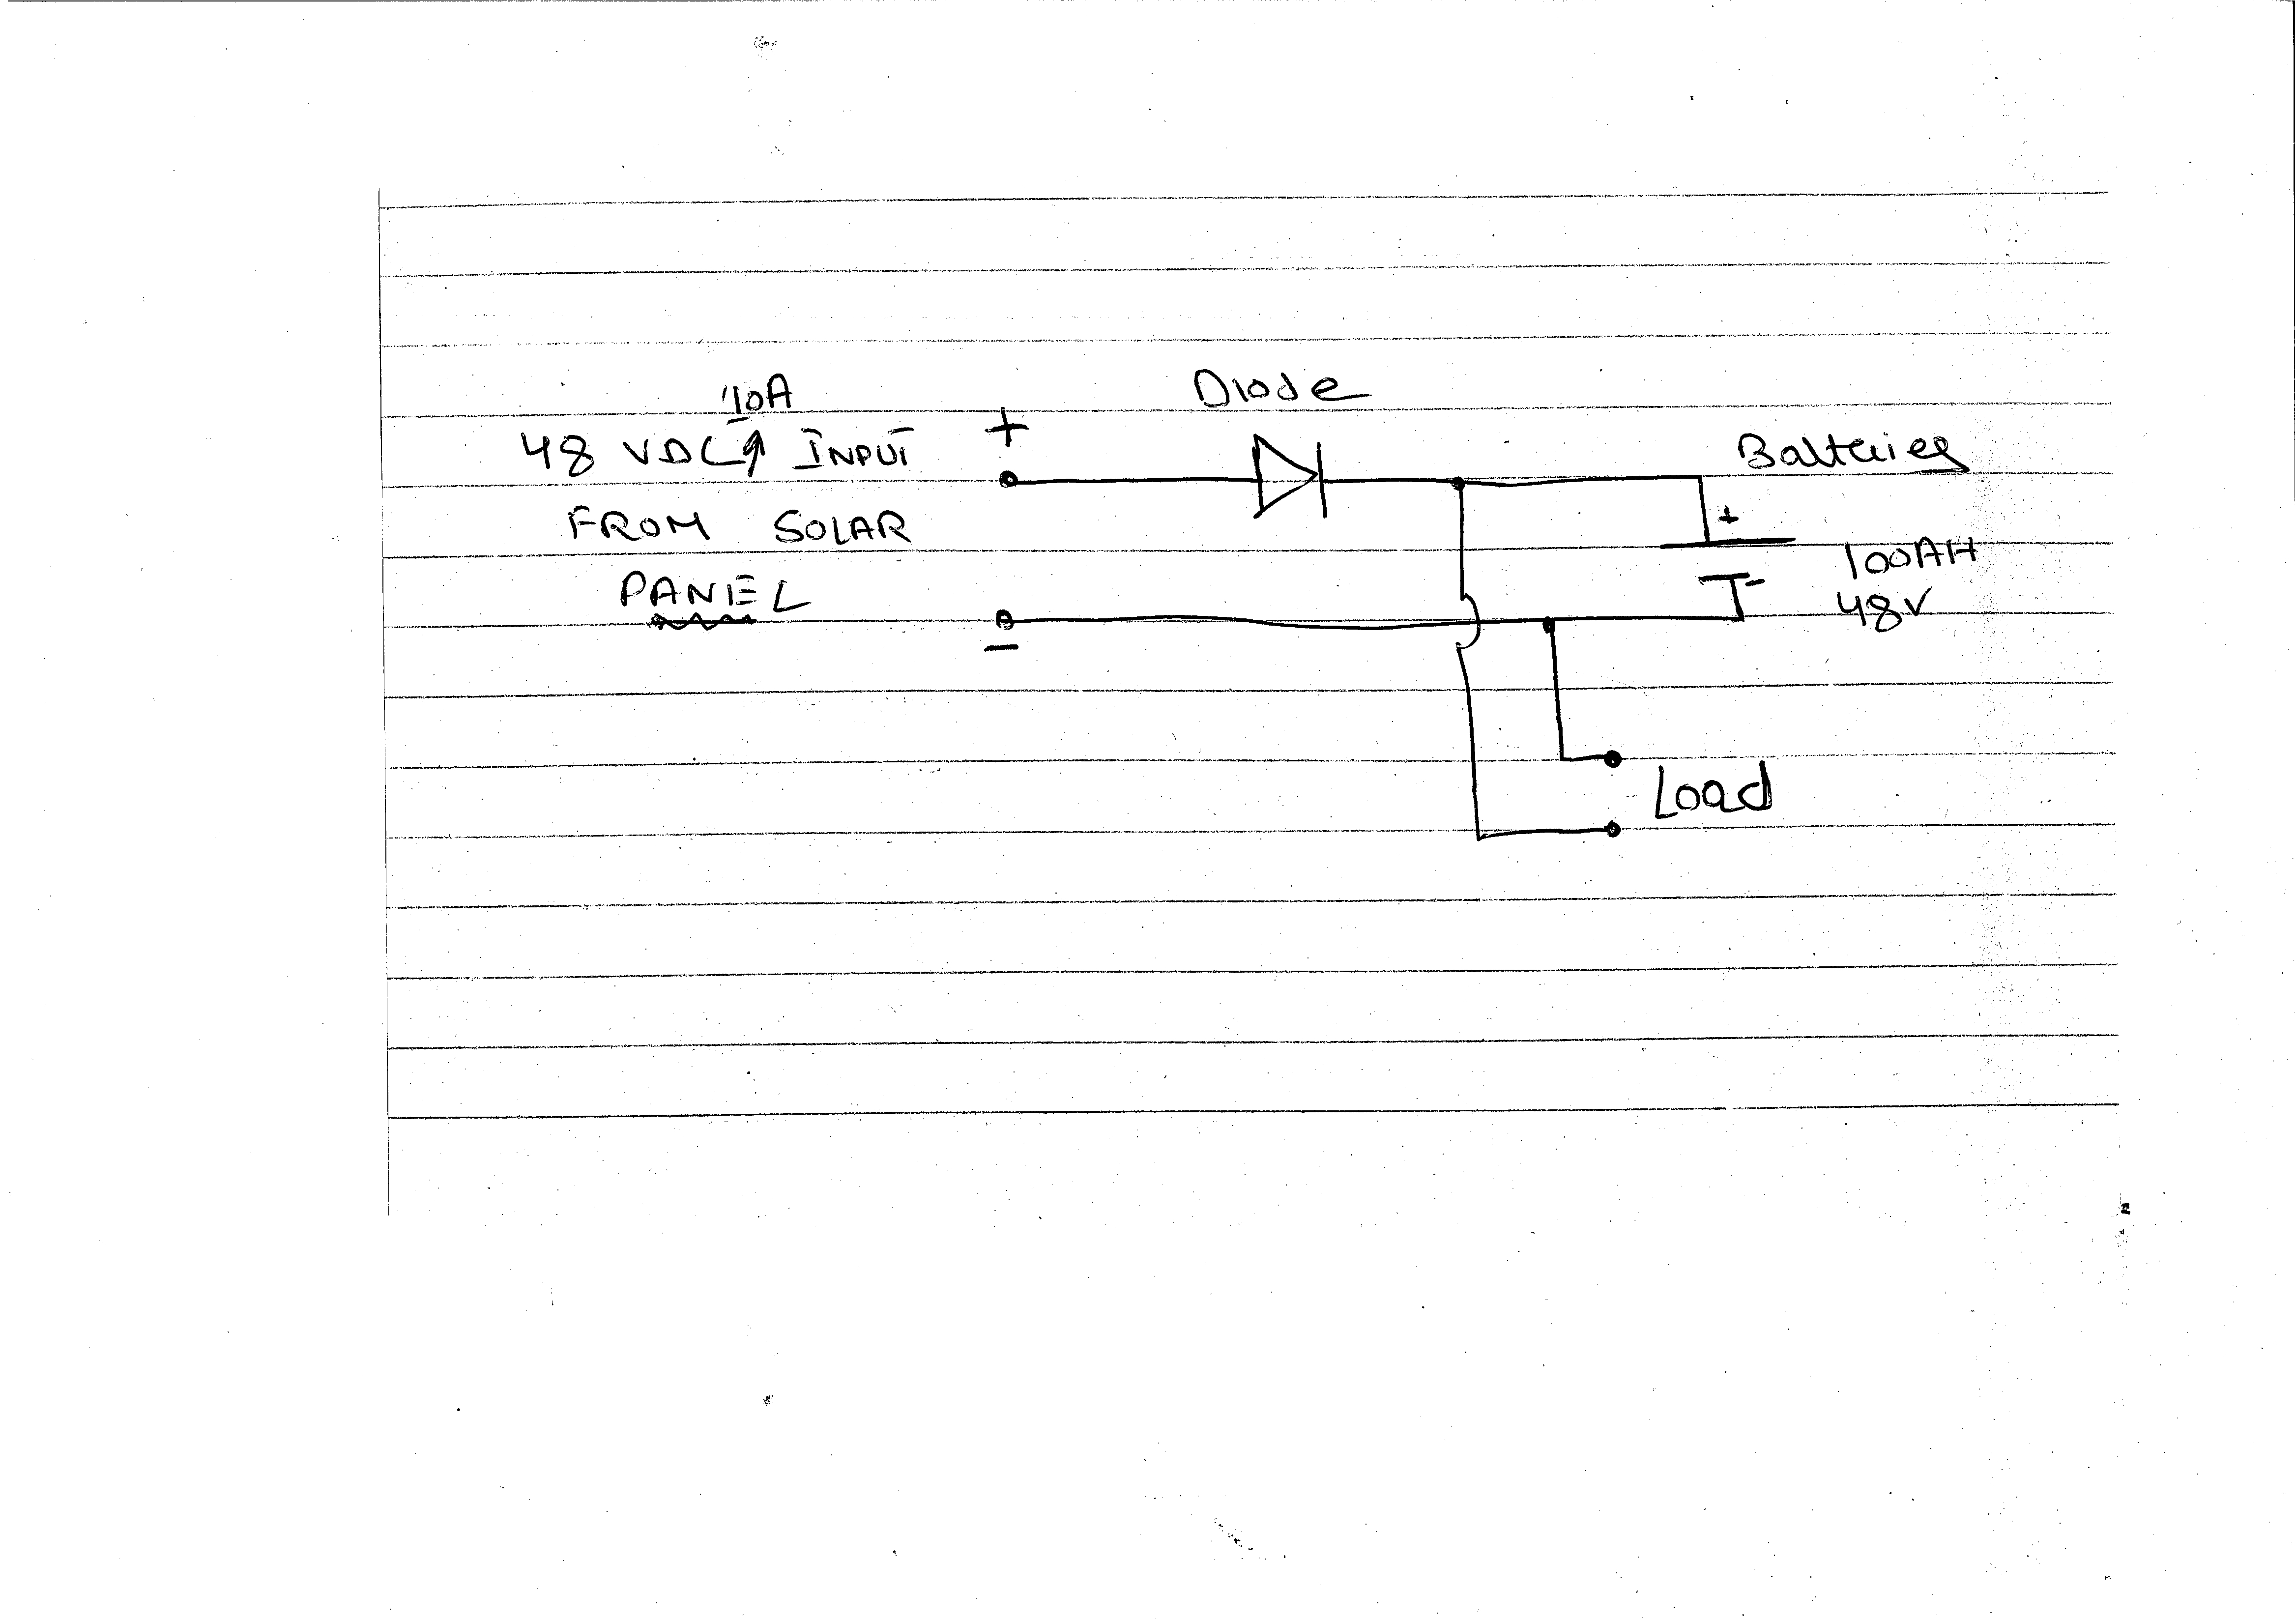 10A
48 VDC INPUT
FROM SOLAR
PANEL
+
-
Diode
Batteries
+
-
100AH
48V
Load